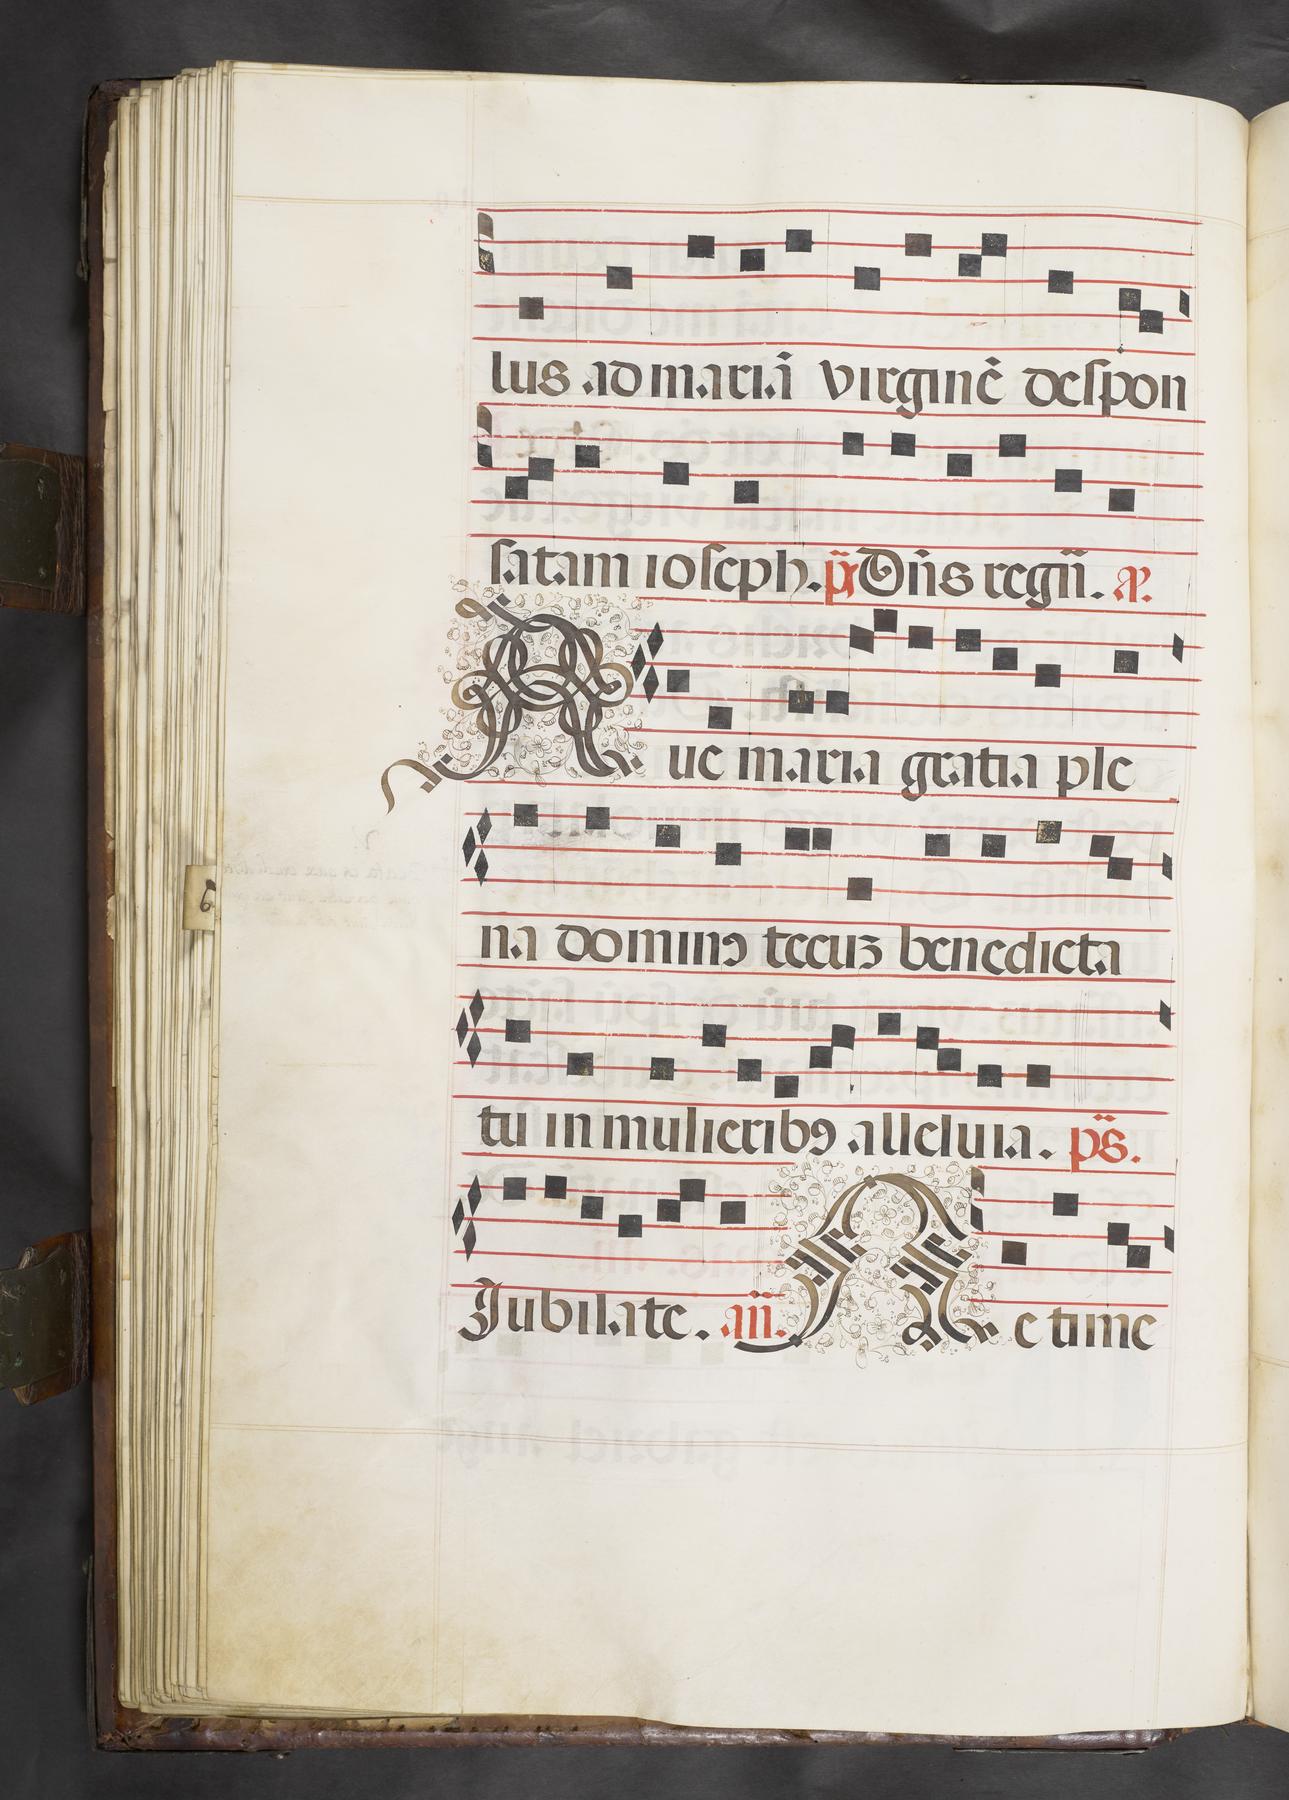 lus ad mariā virginē despon
satam ioseph. p̄s Dn̄s regn̄. a.
Aue maria gratia ple
na dominꝰ tecuz benedicta
tu in mulieribꝰ alleluia. ps.
Jubilate. an̄. Ne time
6